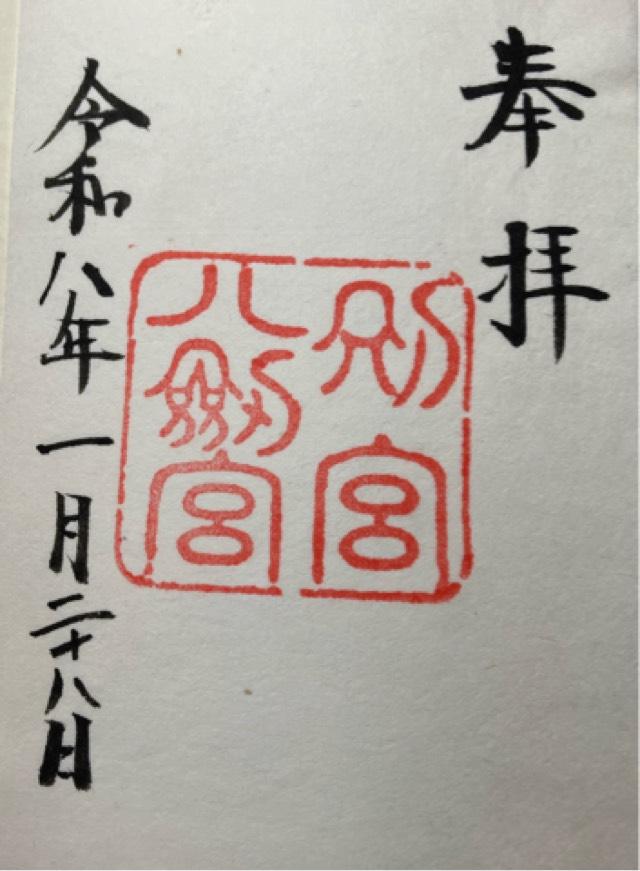 奉拝
別宮
八剱宮
令和八年一月二十八日